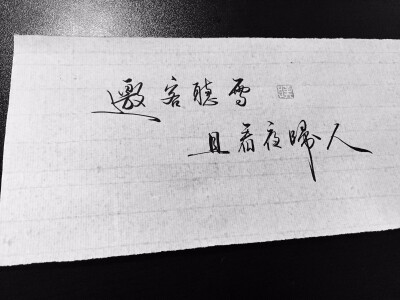 邀客聽雪
且看夜歸人